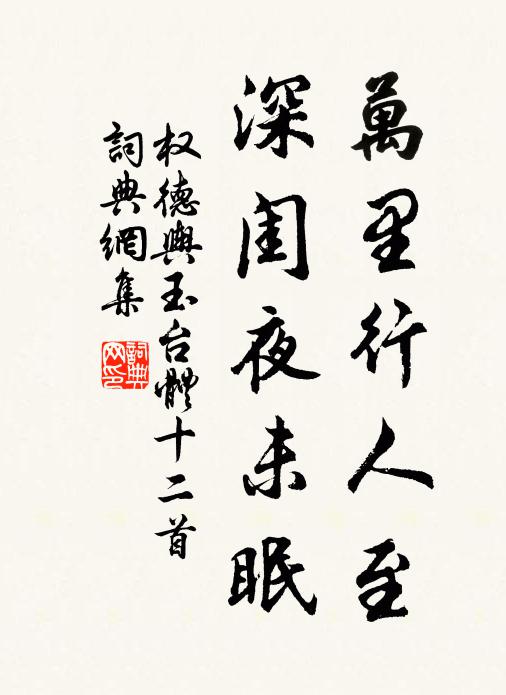 萬里行人至
深闺夜未眠
权德輿玉台體十二首
詞典網集
詞典
网印